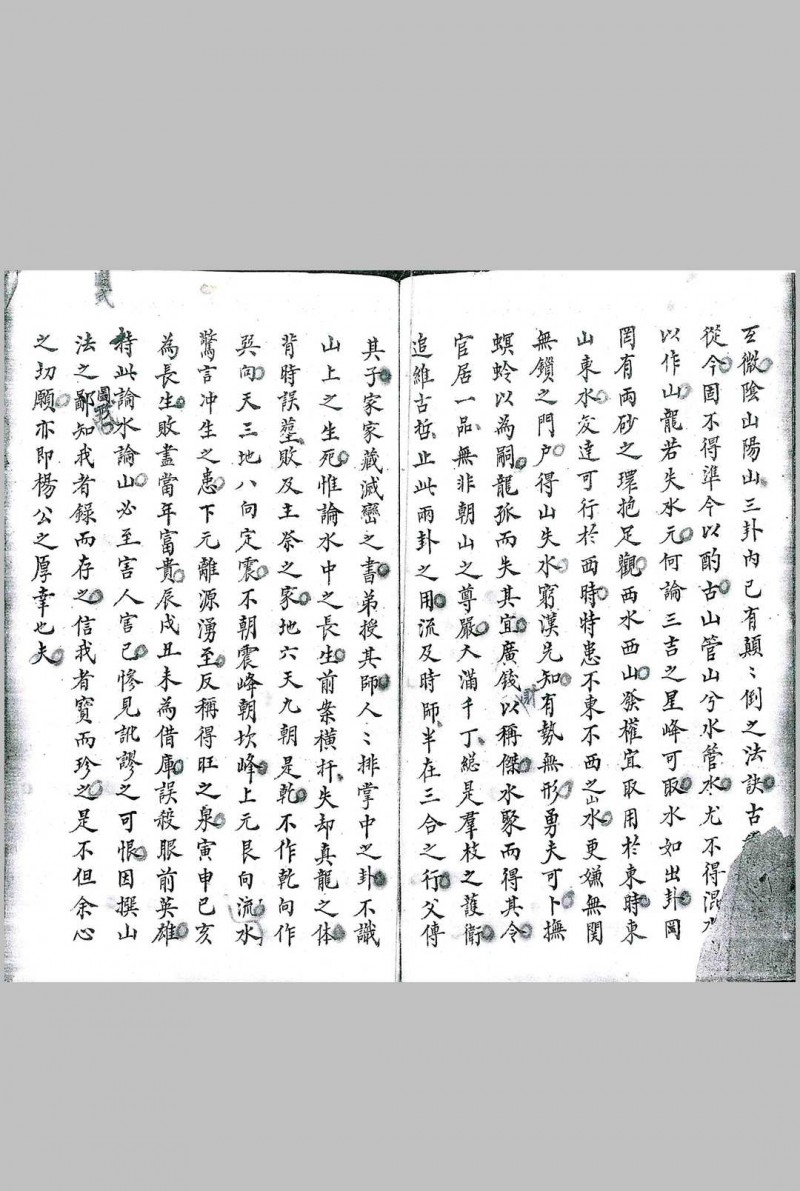 互微陰山陽山三卦內已有顛〻倒之法訣古
從今固不得準今以酌古山管山兮水管水尤不得混水
以作山龍若失水元何論三吉之星峰可取水如出卦岡
罔有兩砂之環抱足觀西水西山發權宜取用於東時東
山東水交達可行於西時特患不東不西之山水更嫌無関
無鎖之門户得山失水窮漢先知有勢無形勇夫可卜撫
螟蛉以為嗣龍孤而失其宜廣錢以稱傑水聚而得其令
官居一品無非朝山之尊嚴人滿千丁總是羣枝之護衛
追維古哲止此兩卦之用流及時師半在三合之行父傳
其子家家藏滅巒之書弟授其師人〻排掌中之卦不識
山上之生死惟論水中之長生前案橫扞失却真龍之体
背時誤塟敗及主祭之家地六天九朝是乾不作乾向作
巽向天三地八向定震不朝震峰朝坎峰上元艮向流水
驚言冲生之患下元離源湧至反稱得旺之泉寅申巳亥
為長生敗盡當年富貴辰戌丑未為借庫誤殺眼前英雄
持此論水論山必至害人害己慘見訛謬之可恨因撰山
法圖訣之鄙知我者録而存之信我者寶而珍之是不但余心
之切願亦即楊公之厚幸也夫